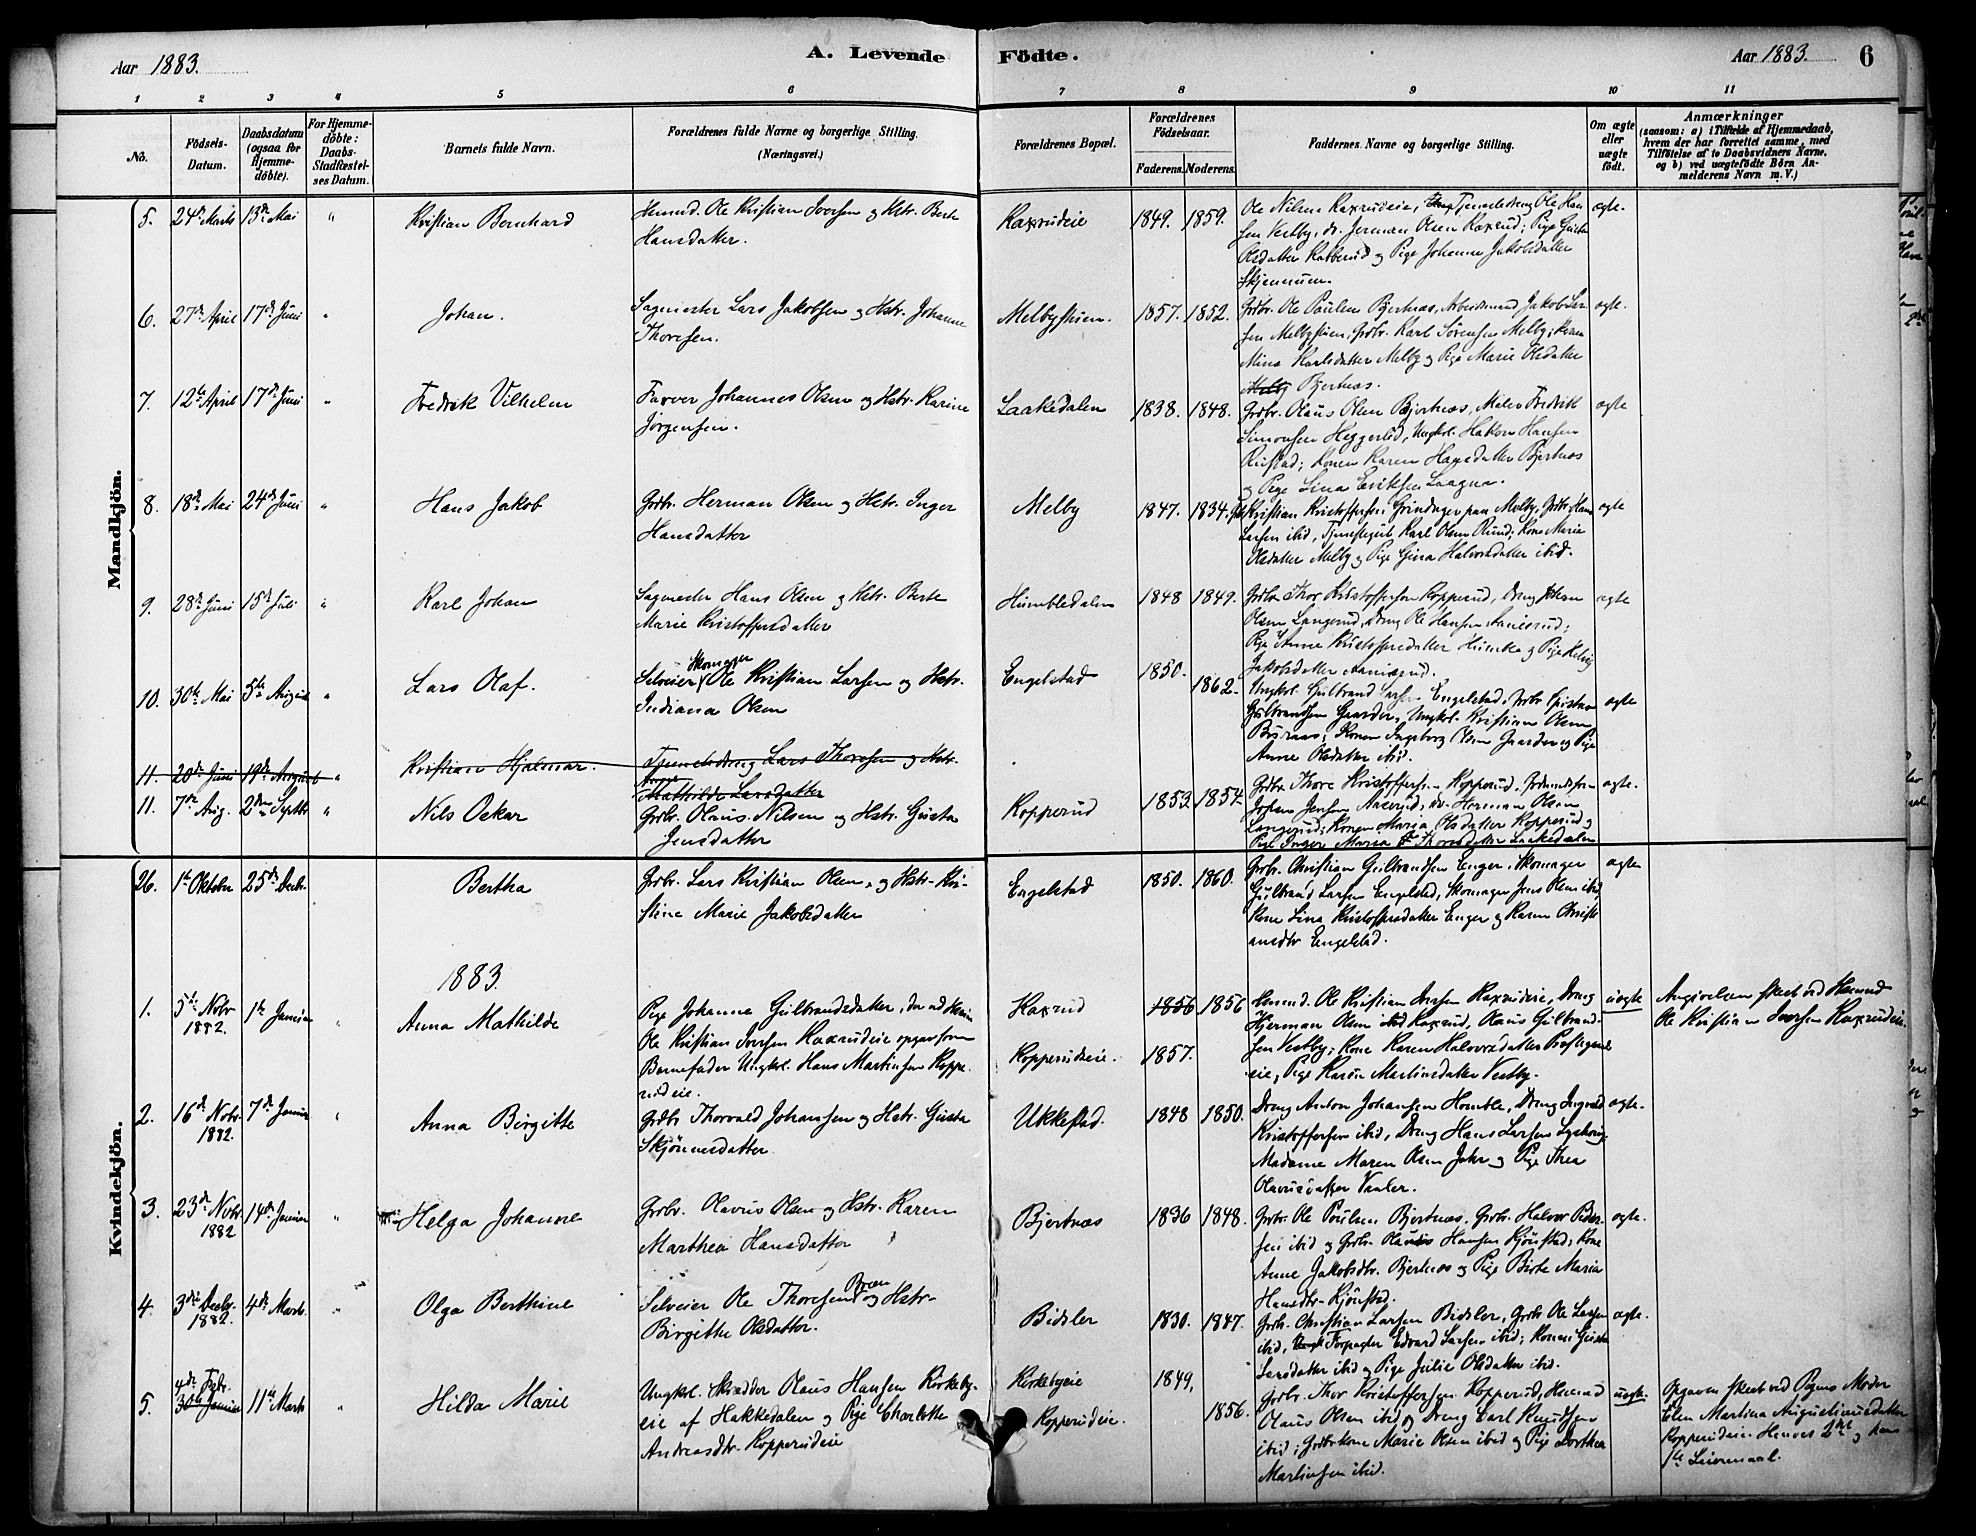 Aar 1883.
A. Levende Födte.
Aar 1883.
6
1 2 3 4 5 6 7 8 9 10 11
No.
Födsels-
Datum.
Daabsdatum
(ogsaa for
Hjemme-
döbte).
For Hjemme-
döbte:
Daabs-
Stadfæstel-
ses Datum.
Barnets fulde Navn.
Forældrenes fulde Navne og borgerlige Stilling.
(Næringsvei.)
Forældrenes Bopæl.
Forældrenes
Födselsaar.
Faderens. Moderens.
Faddernes Navne og borgerlige Stilling.
Om ægte
eller
uægte
födt.
Anmærkninger
(saasom: a) i Tilfælde af Hjemmedaab,
hvem der har forrettet samme, med
Tilföielse af to Daabsvidners Navne,
og b) ved uægtefödte Börn An-
melderens Navn m. V.)
Mandkjön.
5. 24de Marts 13de Mai " Kristian Bernhard
Husmd. Ole Kristian Iversen og Hstr. Berte
Hansdatter.
Raxrudeie 1849. 1859.
Ole Nilsen Raxrudeie, Tjenestedreng Ole Han
sen Vestby, do. Jerman Olsen Raxrud; Pige Gusta
Olsdatter Rabberud og Pige Johanne Jakobsdatter
Skjennum.
ægte.
6. 27de April 17de Juni " Johan.
Sagmester Lars Jakobsen og Hstr. Johanne
Thoresen.
Melbystuen. 1857. 1852.
Grdbr. Ole Paulsen Bjertnæs, Arbeidsmand Jakob Lar
sen Melbystuen, Grdbr. Karl Sørensen Melby; Kone
Mina Karlsdatter Melby og Pige Marie Olsdatter
Melby Bjertnæs.
ægte.
7. 12te April 17de Juni " Fredrik Vilhelm
Farver Johannes Olsen og Hstr. Karine
Jørgensen.
Laakedalen 1838. 1848.
Grdbr. Olaus Olsen Bjertnæs, Maler Fredrik
Simonsen Heggerlid, Ungkl. Hakon Hansen
Ruistad; Konen Karen Hansdatter Bjertnæs
og Pige Lina Eriksen Laagna.
ægte
8. 18de Mai 24de Juni " Hans Jakob
Grdbr. Herman Olsen og Hstr. Inger
Hansdatter
Melby 1847. 1834.
Kristian Kristoffersen Grindager paa Melby, Grdbr. Hans
Larsen ibid, Tjenestegut Karl Olsen Rund; Kone Maria
Olsdatter Melby og Pige Gina Halvorsdatter ibid.
ægte
9. 28de Juni 15de Juli " Karl Johan
Sagmester Hans Olsen og Hstr. Berte
Marie Kristoffersdatter
Humbledalen 1848 1849.
Grdbr. Thor Kristoffersen Kopperud, Dreng Johan
Olsen Langerud, Dreng Ole Hansen Aamodrud;
Pige Anne Kristoffersdatter Humble og Pige Helvig
Jakobsdatter Aamodrud.
ægte
10. 30te Mai 5te August " Lars Olaf.
Selveier Skomager Ole Kristian Larsen og Hstr.
Indiana Olsen
Engelstad 1850. 1862.
Ungkl. Gulbrand Larsen Engelstad, Grdbr. Christian
Gulbrandsen Gaarder, Ungkl. Kristian Olsen
Bøsraas; Konen Ingeborg Olsen Gaarder og Pige
Anne Olsdatter ibid.
ægte
11. 20de Juni 19de August " Kristian Hjalmar.
Tjenestedreng Lars Thoresen og Hstr.
Mathilde Larsdatter
11. 7de Aug. 2den Septbr. " Nils Oskar
Grdbr. Olaus Nilsen og Hstr. Gusta
Jensdatter
Kopperud 1853 1854.
Grdbr. Thore Kristoffersen Kopperud,
Johan Jensen Aaserud, do. Herman Olsen
Langerud; Konen Maria Olsdatter Kopperud og
Pige Inger Maria Thorsdatter Laakedalen
ægte.
Kvindekjön.
26. 1te Oktober 25de Decbr. Bertha
Grdbr. Lars Kristian Olsen og Hstr. Kri-
stine Marie Jakobsdatter
Engelstad 1850. 1860.
Grdbr. Christian Gulbrandsen Enger, Skomager
Gulbrand Larsen Engelstad, Skomager Jens Olsen ibid;
Kone Lina Kristoffersdatter Enger og Karen Christi
ansdtr. Engelstad.
ægte
1883.
1. 5te Novbr. 1882. 1te Januar " Anna Mathilde
Pige Johanna Gulbrandsdatter,
Ole Kristian Iversen Raxrudeie opgav som
Barnefader Ungkl. Hans Martinsen Koppe-
rudeie.
Raxrud 1856 1856
Kopperudeie. 1857.
Husmd. Ole Kristian Iversen Raxrudeie, Dreng
Hjerman Olsen Raxrud, Olaus Gulbrand-
sen Vestby; Kone Karen Halvorsdatter
eie, Pige Karen Martinsdatter Vestby.
uægte
Angivelsen skeet ved Husmd.
Ole Kristian Iversen Raxrudeie.
2. 16de Novbr. 1882. 7de Januar " Anna Birgitte
Grdbr. Thorvald Johansen og Hstr. Gusta
Skjønnesdatter
Ukkestad. 1848 1850.
Dreng Anton Johansen Homble, Dreng Ingvald
Kristoffersen ibid, Dreng Hans Larsen
Madame Maren Olsen Jahr og Pige Thea
Olausdatter Vaaler.
ægte.
3. 23de Novbr. 1882 14de Januar " Helga Johanne
Grdbr. Olavus Olsen og Hstr. Karen
Marthea Hansdatter
Bjertnæs 1836 1848.
Grdbr. Ole Poulsen Bjertnæs, Grdbr. Halvor Peder-
sen ibid og Grdbr. Olaus Hansen Kjønstad; Kone
Anne Jakobsdtr. Bjertnæs og Pige Birte Maria
Hansdtr. Kjønstad.
ægte.
4. 3die Decbr. 1882. 4de Marts. " Olga Berthine
Selveier Ole Thoresen Bræn og Hstr.
Birgitte Olsdatter.
Bidsler 1830. 1847.
Grdbr. Christian Larsen Bidsler, Grdbr. Ole Larsen
ibid, Forpagter Edvard Larsen ibid; Konen Gusta
Larsdatter ibid og Pige Julie Olsdatter ibid.
ægte.
5. 4de Febr. 30te Januar 11te Marts " Hilda Marie
Ungkl. Skrædder Olaus Hansen Kirkeby-
eie af Hakkedalen og Pige Charlotte
Andreasdtr. Kopperudeie
Kirkebyeie 1849,
Kopperudeie. 1856.
Grdbr. Thor Kristoffersen Kopperud, Husmd.
Olaus Olsen ibid og Dreng Carl Knudsen
ibid; Grdbrkone Marie Olsen ibid og Pige Dorthea
Martinsen ibid.
uægte
Opgaven skeet ved Pigens Moder
Elen Martina Augustinusdatter
Kopperudeie. Hendes 2det og hans
1te Leiermaal.